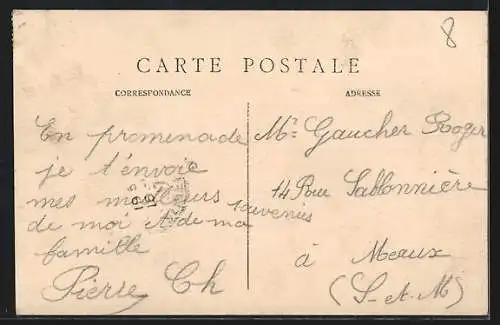 8
CARTE POSTALE
CORRESPONDANCE
ADRESSE
En promenade
je t'envoie
mes meilleurs souvenirs
de moi et de ma
famille
Pierre Ch
Mr Gaucher Roger
14 Rue Sablonnière
à Meaux
(S-et-M)